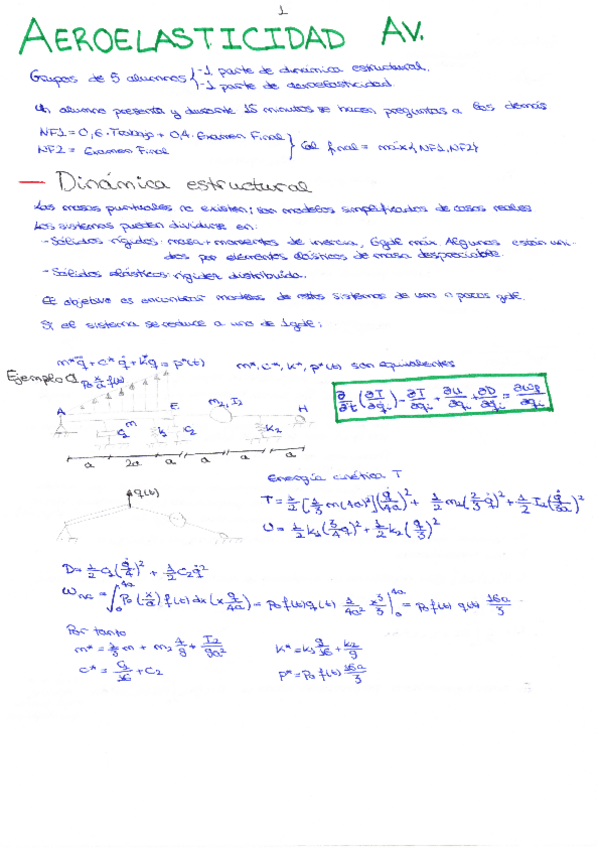 1
AEROELASTICIDAD AV.
Grupos de 5 alumnos { -1 parte de dinámica estructural.
-1 parte de aeroelasticidad.
Un alumno presenta y durante 15 minutos se hacen preguntas a los demás
NF1 = 0,6·Trabajo + 0,4·Examen Final
NF2 = Examen Final } Cal final = máx{NF1,NF2}
— Dinámica estructural
Las masas puntuales no existen; son modelos simplificados de casos reales
Los sistemas pueden dividirse en:
- Sólidos rígidos: masa + momentos de inercia, 6gdl máx. Algunos están uni-
dos por elementos elásticos de masa despreciable.
- Sólidos elásticos: rigidez distribuida.
El objetivo es encontrar modelos de estos sistemas de uno o pocos gdl.
Si el sistema se reduce a uno de 1gdl:
m* q̈ + c* q̇ + k* q = p*(t) m*, c*, k*, p*(t) son equivalentes
Ejemplo 1
p₀ x/a f(t)
∂/∂t (∂T/∂q̇ᵢ) - ∂T/∂qᵢ + ∂U/∂qᵢ + ∂D/∂q̇ᵢ = ∂Wp/∂qᵢ
A E m₂, I₂ H
c₁ m k₁ c₂ k₂
a 2a a a a a
Energía cinética T
q(t)
T = 1/2 [1/3 m(4a)²] (q̇/4a)² + 1/2 m₂ (2/3 q̇)² + 1/2 I₂ (q̇/3a)²
U = 1/2 k₁ (3/4 q)² + 1/2 k₂ (q/3)²
D = 1/2 c₁ (q̇/4)² + 1/2 c₂ q̇²
Wnc = ∫₀⁴ᵃ p₀ (x/a) f(t) dx (x q/4a) = p₀ f(t) q(t) 1/4a² x³/3 |₀⁴ᵃ = p₀ f(t) q(t) 16a/3
Por tanto
m* = 1/3 m + m₂ 4/9 + I₂/9a² k* = k₁ 9/16 + k₂/9
c* = c₁/16 + c₂ p* = p₀ f(t) 16a/3